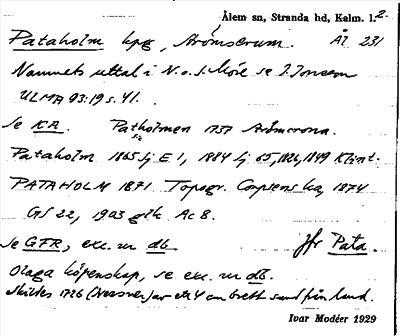 Ålem sn, Stranda hd, Kalm. l. 2.
Pataholm kpg, Arömserum. Ål 231
Namnets uttal i N. o. S. Möre se I. Jonsson
ULMA 93:19 s. 41.
Se KA. Patholmen 1737 Arömcrona.
Pataholm 1865 lj E 1, 1884 lj 65, 1826, 1849 Klint.
PATAHOLM 1871 Topogr. Corpsens ka, 1874
GS 22, 1903 gék Ac 8.
Se GFR, exc. ur db. Jfr Pata.
Olaga köpenskap, se exc. ur db.
Skildes 1726 (Nessner) av ett 4 am brett sund från land.
Ivar Modéer 1929